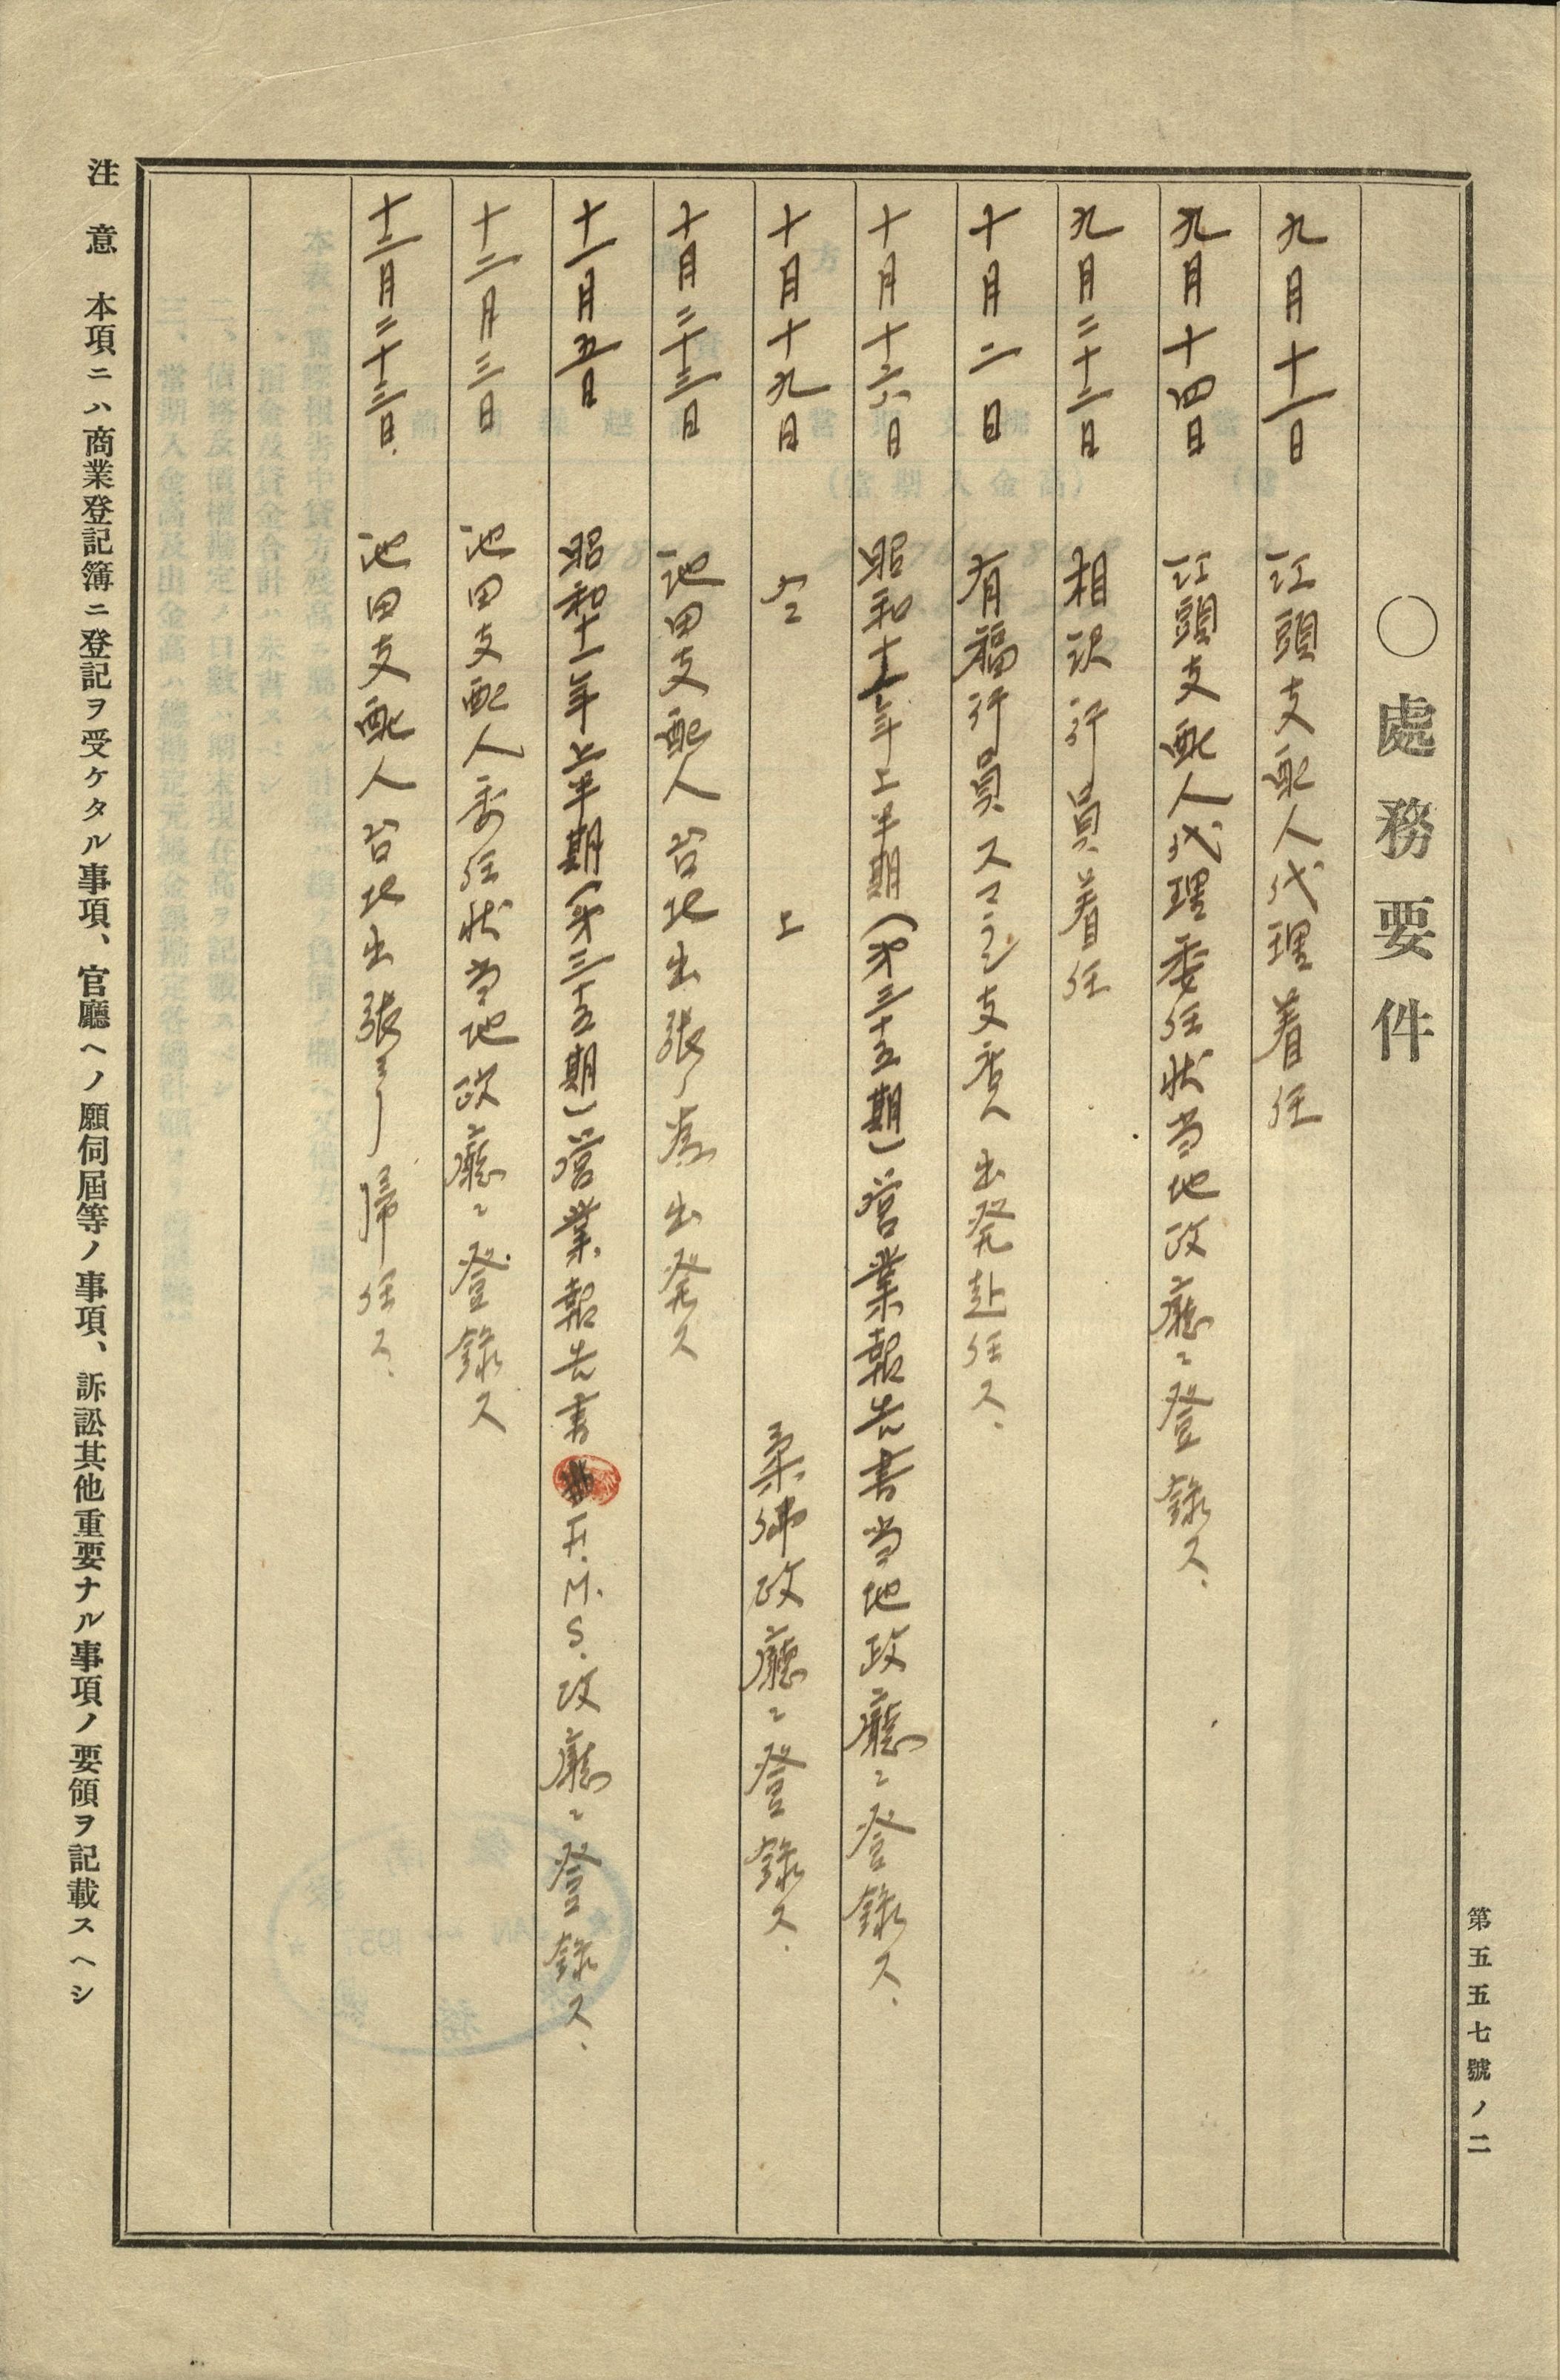 第五五七號ノ二
〇處務要件
九月十一日 江頭支配人代理着任
九月十四日 江頭支配人代理委任状当地政廳ニ登録ス、
九月二十二日 相沢行員着任
十月二日 有福行員スマラン支店ヘ出発赴任ス、
十月十六日 昭和十一年上半期(第三十五期)営業報告書当地政廳ニ登録ス、
十月十九日 仝 上 柔佛政廳ニ登録ス、
十月二十三日 池田支配人台地出張ノ為出発ス
十一月五日 昭和十一年上半期(第三十五期)営業報告書F.M.S.政廳ニ登録ス、
十二月三日 池田支配人委任状当地政廳ニ登録ス
十二月二十三日、 池田支配人台地出張ヨリ帰任ス、
注意 本項ニハ商業登記簿ニ登記ヲ受ケタル事項、官廳ヘノ願伺屆等ノ事項、訴訟其他重要ナル事項ノ要領ヲ記載スヘシ